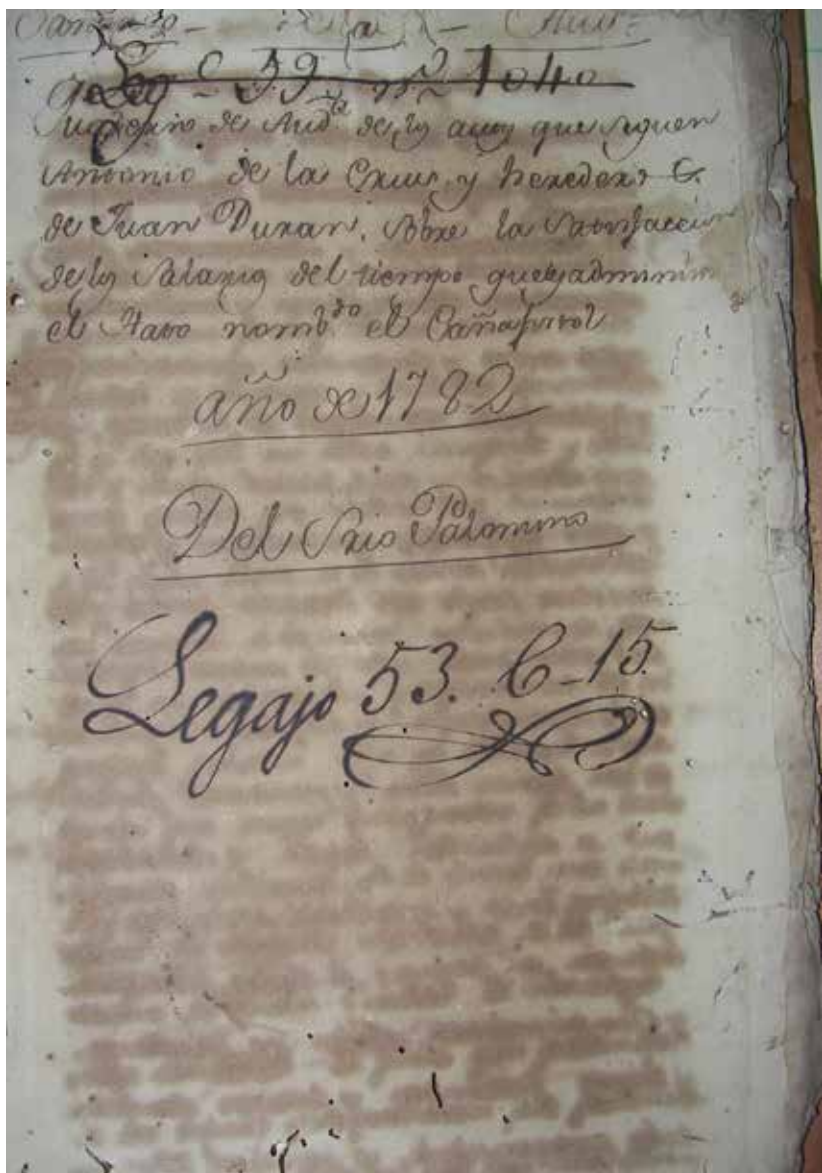 Leg^o 59 n^o 1040
Quaderno de Aud^a de los autos que siguen
Antonio de la Cruz, y herederos
de Juan Duran, sobre la Satisfaccion
de los Salarios del tiempo que
el Hato nomb^do el Cañafistol
año de 1782
Del Srio Palomino
Legajo 53. C-15.